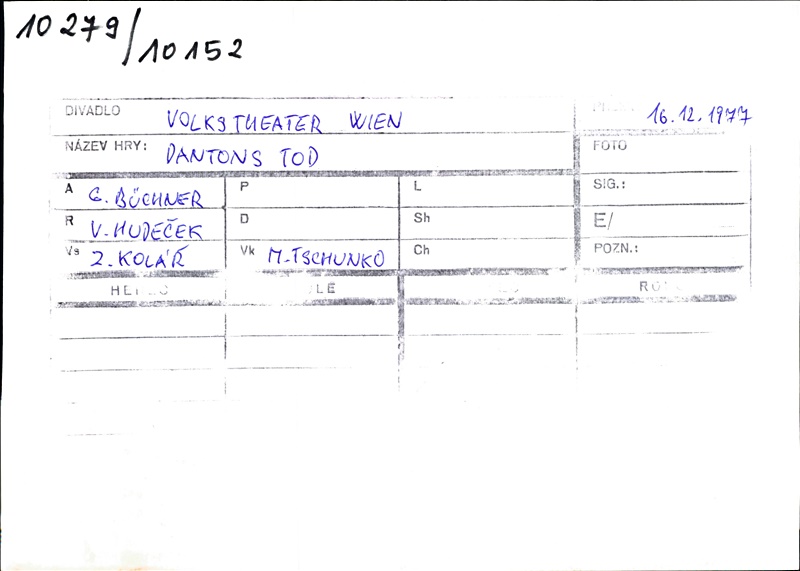 10 279/
10 152
DIVADLO VOLKSTHEATER WIEN 16.12.1977
NÁZEV HRY: DANTONS TOD FOTO
A G. BÜCHNER P L SIG.:
R V. HUDEČEK D Sh E/
Vs Z. KOLÁŘ Vk M. TSCHUNKO Ch POZN.: